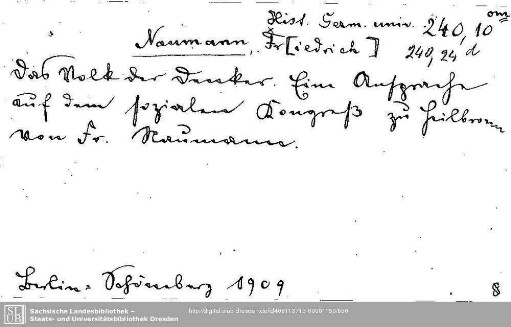 Hist. Germ. univ. 240, 10 om
Naumann, Fr[iedrich] 240, 24 d
Das Volk der Denker. Eine Ansprache
auf dem sozialen Kongreß zu Heilbronn
von Fr. Naumann.
Berlin-Schöneberg 1909
8
SLUB
Sächsische Landesbibliothek –
Staats- und Universitätsbibliothek Dresden